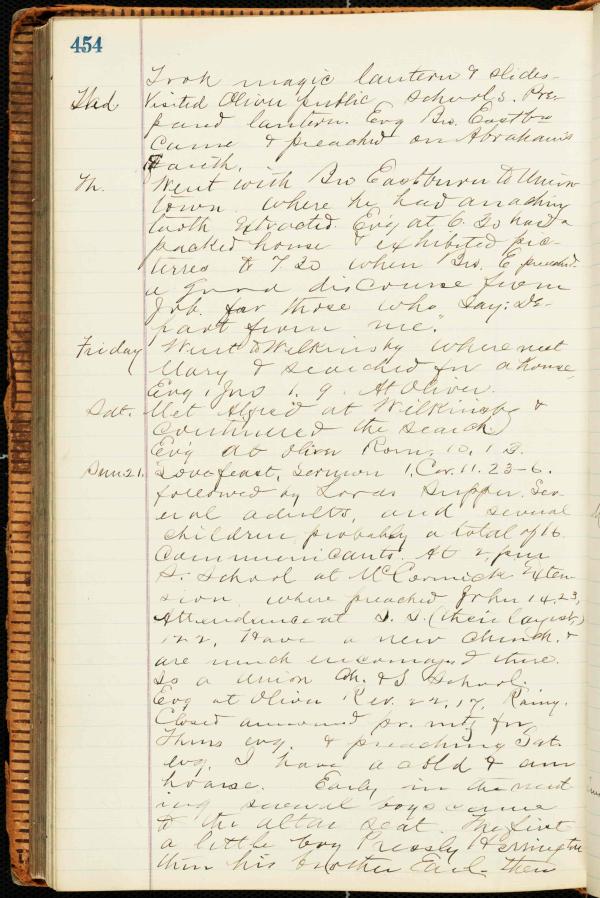 454
Took magic lantern & slides.
Wed. Visited Oliver public schools. Pre-
pared lantern. Evg Bro. Eastbu
came & preached on Abraham's
Faith.
Th. Went with Bro Eastburn to Union-
town where he had an aching
tooth extracted. Evg at 6.30 had a
packed house & exhibited pic-
tures to 7.30 when Bro. E preached
a good discourse from
Job. for those who say: De-
part from me."
Friday Went to Wilkinsbg where met
Mary & searched for a house,
Evg, Jno 1. 9. At Oliver.
Sat. Met Alfred at Wilkinsbg &
continued the search.
Ev'g at Oliver Rom. 10, 1 3.
Sun. 21. Lovefeast, Sermon 1, Cor. 11. 23-6.
followed by Lords Supper. Sev-
eral adults, and several
children probably a total of 16
communicants. At 2, pm
S. School at McCormick Exten-
sion where preached John 14.23,
Attendance at S. S. (their largest)
122. Have a new church. &
are much encouraged there.
Is a Union Ch. & S School.
Evg at Oliver Rev. 22, 17, Rainy.
Closed announced pr. mtg for
Thurs evg. & preaching Sat.
evg. I have a cold & am
hoarse. Early in the meet-
ing several boys came
to the altar seat. The first
a little boy Pressly Herrington
then his brother Earl. then